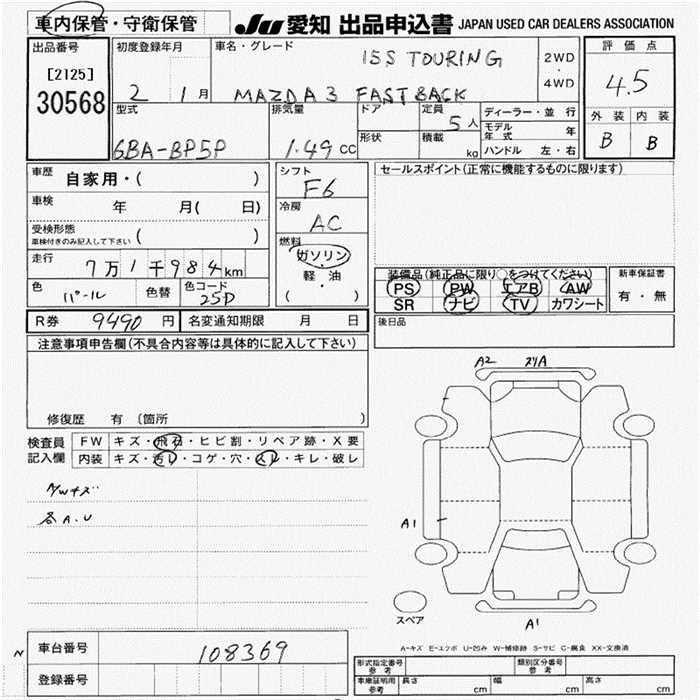 車内保管・守衛保管
JU 愛知 出品申込書 JAPAN USED CAR DEALERS ASSOCIATION
出品番号
[2125]
30568
初度登録年月
2 1月
車名・グレード
15S TOURING
MAZDA3 FASTBACK
2WD
・
4WD
評価点
4.5
外装 内装
B B
型式
6BA-BP5P
排気量
1.49 CC
ドア
形状
定員
5人
積載
kg
ディーラー・並行
モデル年式 年
ハンドル 左・右
車歴
自家用・( )
車検
年 月( 日)
受検形態
車検付きのみ記入して下さい ( )
走行
7万1千984km
色
パール
色替
色コード
25D
シフト
F6
冷房
AC
燃料
ガソリン
軽・油
( )
セールスポイント(正常に機能するものに限ります)
装備品(純正品に限り○をつけてください)
PS PW エアB AW
SR ナビ TV カワシート
新車保証書
有・無
後日品
R券 9490円
名変通知期限 月 日
注意事項申告欄(不具合内容等は具体的に記入して下さい)
修復歴 有 〔箇所 〕
検査員
記入欄
FW キズ・飛石・ヒビ割・リペア跡・X要
内装 キズ・汚レ・コゲ・穴・スレ・キレ・破レ
A/Wキズ
各A.U
A2 スリA
A1
スペア
A1
A-キズ E-エクボ U-凹み W-補修跡 S-サビ C-腐食 XX-交換済
N
車台番号
108369
登録番号
形式指定番号
参考
類別区分番号
参考
車庫証明用
参考
長さ cm 幅 cm 高さ cm